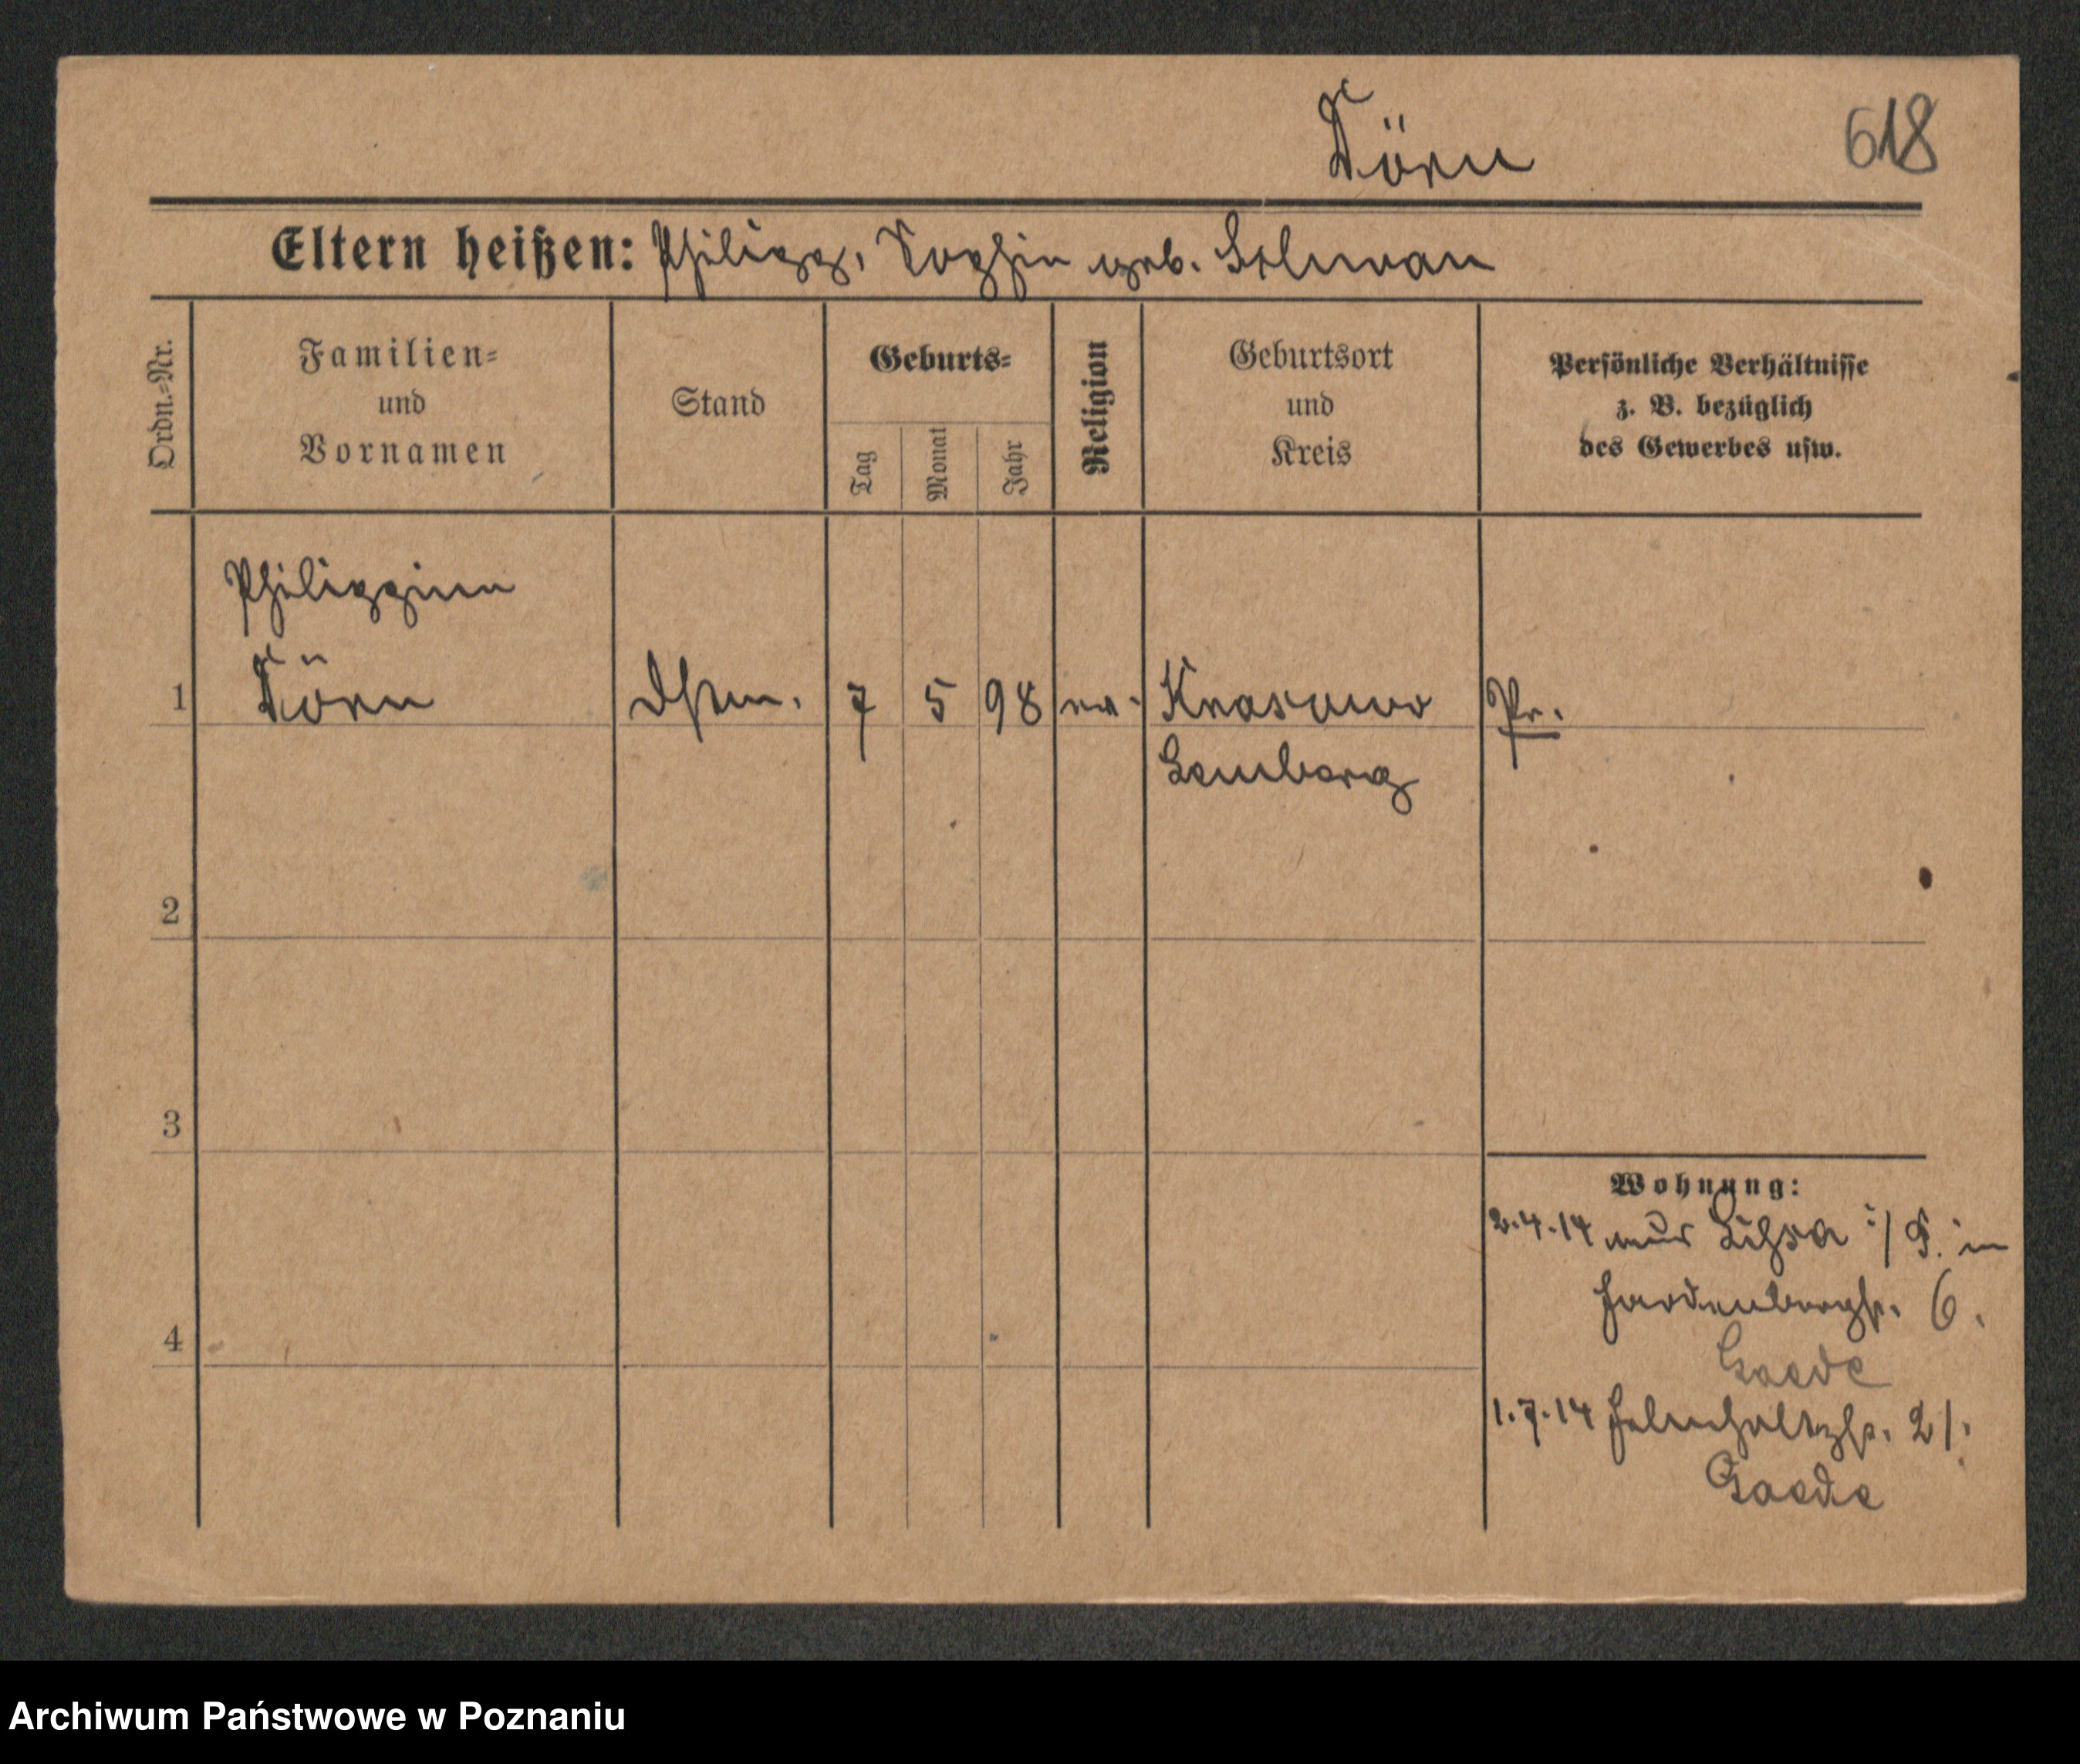 Dörn
618
Eltern heißen: Philipp, Sophie geb.
Ordn.=Nr.
Familien=
und
Vornamen
Stand
Geburts=
Tag
Monat
Jahr
Religion
Geburtsort
und
Kreis
Persönliche Verhältnisse
z. B. bezüglich
des Gewerbes usw.
Philippine
1 Dörn 7 5 98 ev. Pr.
Lemberg
2
3
Wohnung:
2.4.14 aus Lissa i/P. in
Hardenbergstr. 6.
Gaede
4
1.7.14 Helmholtzstr. 21.
Gaede
Archiwum Państwowe w Poznaniu